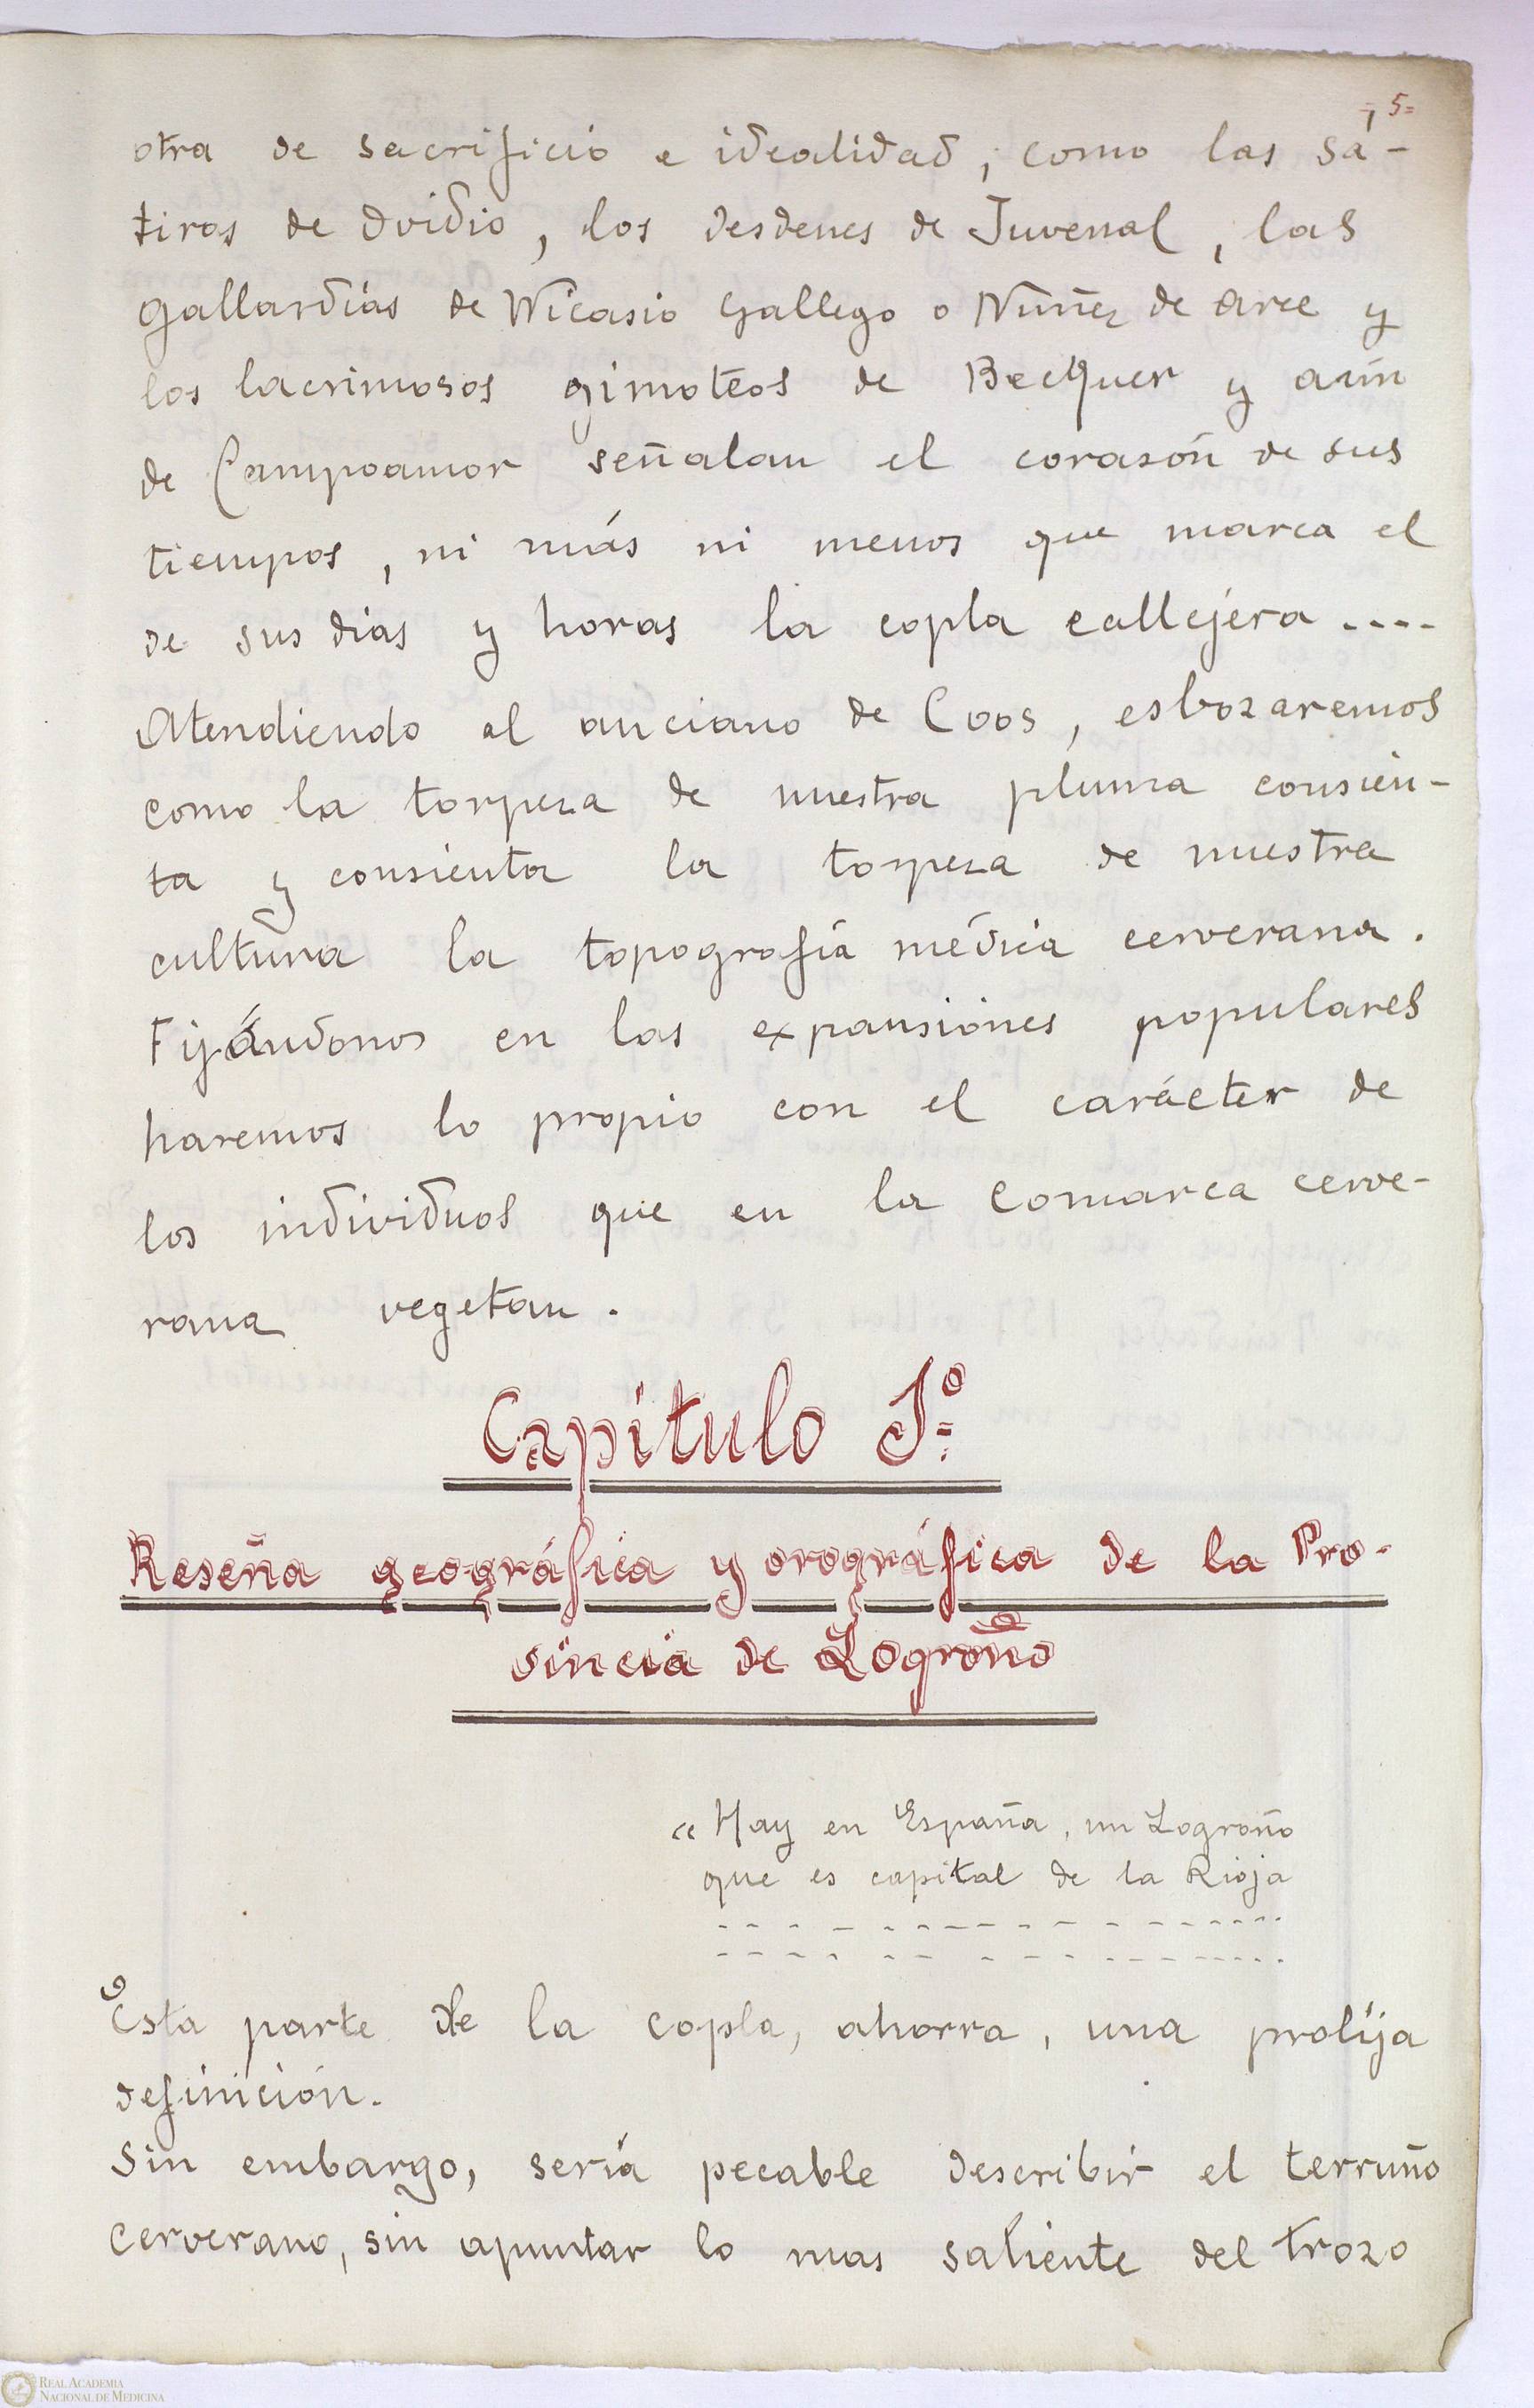 =5=
otra de sacrificio e idealidad, como las sá-
tiras de Ovidio, los desdenes de Juvenal, las
gallardías de Nicasio Gallego o Núñez de Arce y
los lacrimosos gimotéos de Becquer y aún
de Campoamor señalan el corasón de sus
tiempos, ni más ni menos que marca el
de sus dias y horas la copla callejera ....
Atendiendo al anciano de Coos, esbozaremos
como la torpeza de nuestra pluma consien-
ta y consienta la torpeza de nuestra
cultura la topografía médica cerverana.
Fijándonos en las expansiones populares
haremos lo propio con el carácter de
los individuos que en la comarca cerve-
rana vegetan.
Capítulo I.º
Reseña geográfica y orográfica de la Pro-
vincia de Logroño
"Hay en España, un Logroño
que es capital de la Rioja
- - - - - - - - - - - - - - - - -
- - - - - - - - - - - - - - - - -
Esta parte de la copla, ahorra, una prolija
definición.
Sin embargo, sería pecable describir el terruño
cerverano, sin apuntar lo mas saliente del trozo
REAL ACADEMIA
NACIONAL DE MEDICINA